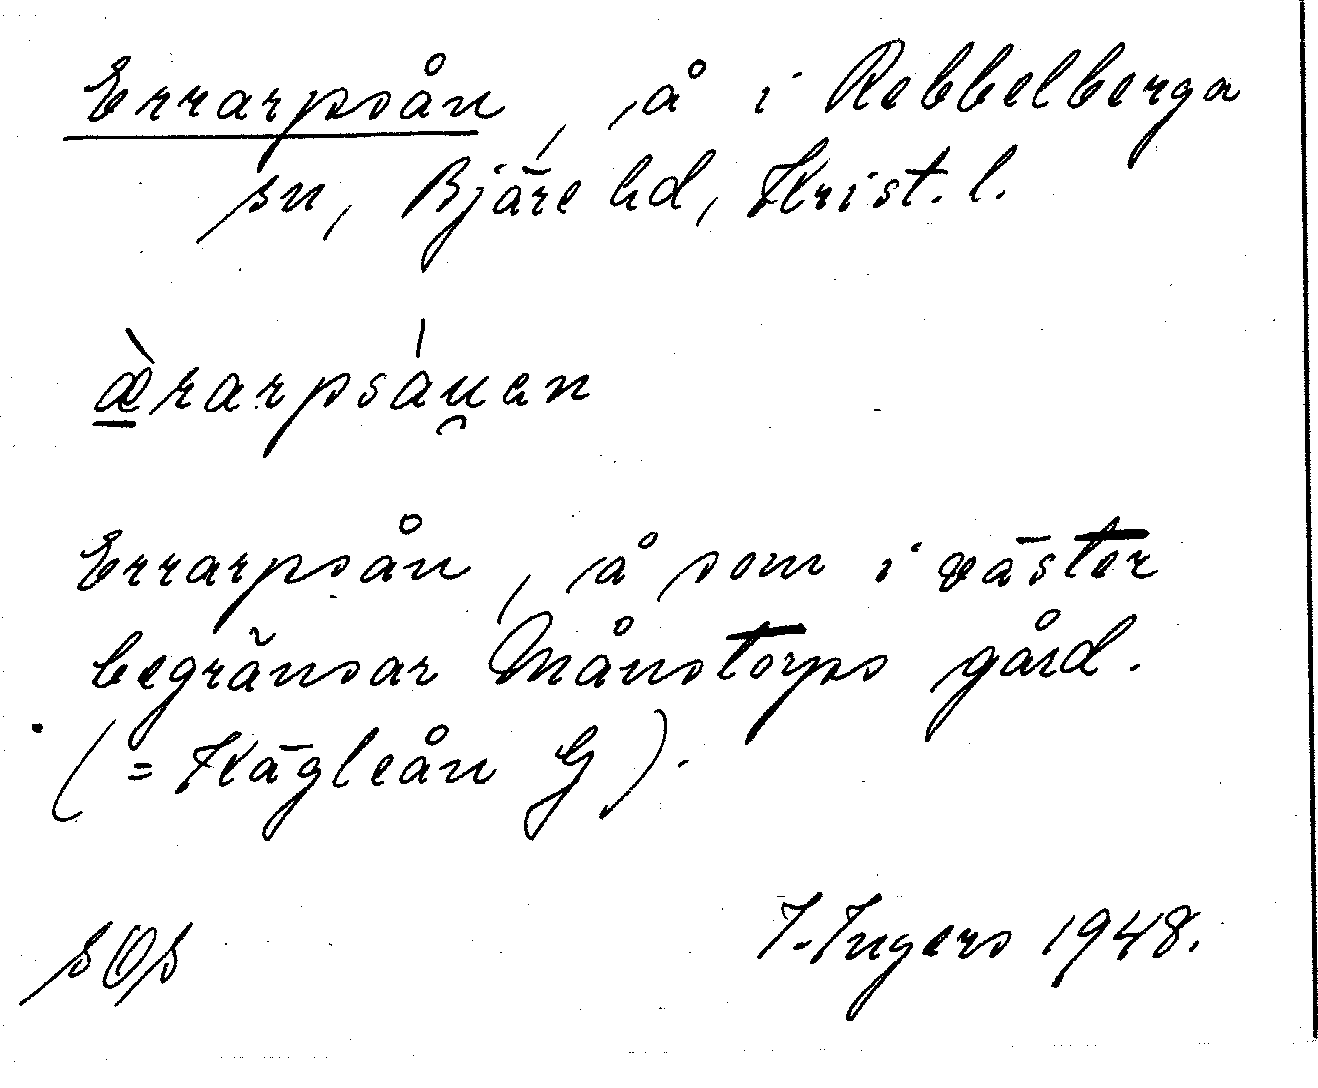 Errarpsån, å i Rebbelberga
sn, Bjäre hd, Krist. l.
æ̱̀rarpsáu̯en
Errarpsån, å som i väster
begränsar Månstorps gård.
(= Kägleån G).
SOS I. Ingers 1948.